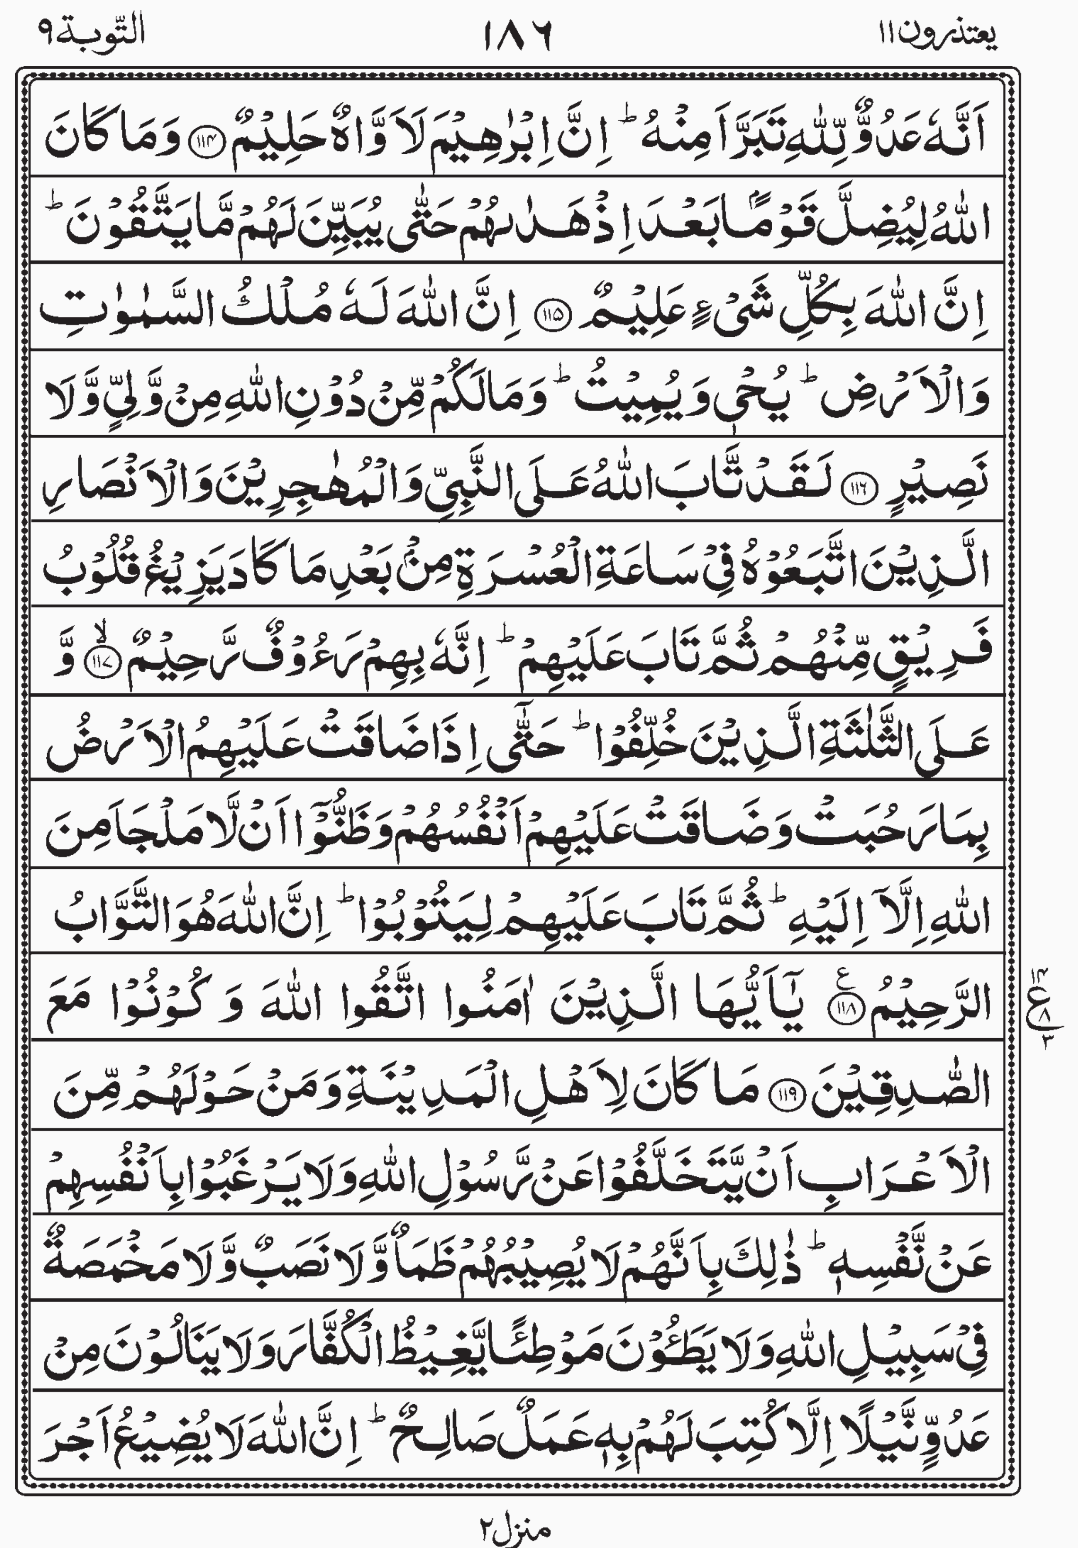 يعتذرون ١١ ١٨٦ التّوبة ٩
اَنَّهٗ عَدُوٌّ لِّلّٰهِ تَبَرَّاَ مِنْهُ ؕ اِنَّ اِبْرٰهِيْمَ لَاَوَّاهٌ حَلِيْمٌ ﴿۱۱۴﴾ وَمَا كَانَ
اللّٰهُ لِيُضِلَّ قَوْمًۢا بَعْدَ اِذْ هَدٰىهُمْ حَتّٰى يُبَيِّنَ لَهُمْ مَّا يَتَّقُوْنَ ؕ
اِنَّ اللّٰهَ بِكُلِّ شَىْءٍ عَلِيْمٌ ﴿۱۱۵﴾ اِنَّ اللّٰهَ لَهٗ مُلْكُ السَّمٰوٰتِ
وَالْاَرْضِ ؕ يُحْىٖ وَيُمِيْتُ ؕ وَمَا لَكُمْ مِّنْ دُوْنِ اللّٰهِ مِنْ وَّلِيٍّ وَّلَا
نَصِيْرٍ ﴿۱۱۶﴾ لَقَدْ تَّابَ اللّٰهُ عَلَى النَّبِيِّ وَالْمُهٰجِرِيْنَ وَالْاَنْصَارِ
الَّذِيْنَ اتَّبَعُوْهُ فِيْ سَاعَةِ الْعُسْرَةِ مِنْۢ بَعْدِ مَا كَادَ يَزِيْغُ قُلُوْبُ
فَرِيْقٍ مِّنْهُمْ ثُمَّ تَابَ عَلَيْهِمْ ؕ اِنَّهٗ بِهِمْ رَءُوْفٌ رَّحِيْمٌ ﴿۱۱۷﴾ۙ وَّ
عَلَى الثَّلٰثَةِ الَّذِيْنَ خُلِّفُوْا ؕ حَتّٰۤى اِذَا ضَاقَتْ عَلَيْهِمُ الْاَرْضُ
بِمَا رَحُبَتْ وَضَاقَتْ عَلَيْهِمْ اَنْفُسُهُمْ وَظَنُّوْۤا اَنْ لَّا مَلْجَاَ مِنَ
اللّٰهِ اِلَّاۤ اِلَيْهِ ؕ ثُمَّ تَابَ عَلَيْهِمْ لِيَتُوْبُوْا ؕ اِنَّ اللّٰهَ هُوَ التَّوَّابُ
الرَّحِيْمُ ﴿۱۱۸﴾ع يٰۤاَيُّهَا الَّذِيْنَ اٰمَنُوا اتَّقُوا اللّٰهَ وَ كُوْنُوْا مَعَ
۱۴
ع
۸
۳
الصّٰدِقِيْنَ ﴿۱۱۹﴾ مَا كَانَ لِاَهْلِ الْمَدِيْنَةِ وَمَنْ حَوْلَهُمْ مِّنَ
الْاَعْرَابِ اَنْ يَّتَخَلَّفُوْا عَنْ رَّسُوْلِ اللّٰهِ وَلَا يَرْغَبُوْا بِاَنْفُسِهِمْ
عَنْ نَّفْسِهٖ ؕ ذٰلِكَ بِاَنَّهُمْ لَا يُصِيْبُهُمْ ظَمَاٌ وَّلَا نَصَبٌ وَّلَا مَخْمَصَةٌ
فِيْ سَبِيْلِ اللّٰهِ وَلَا يَطَـُٔوْنَ مَوْطِئًا يَّغِيْظُ الْكُفَّارَ وَلَا يَنَالُوْنَ مِنْ
عَدُوٍّ نَّيْلًا اِلَّا كُتِبَ لَهُمْ بِهٖ عَمَلٌ صَالِحٌ ؕ اِنَّ اللّٰهَ لَا يُضِيْعُ اَجْرَ
منزل ٢